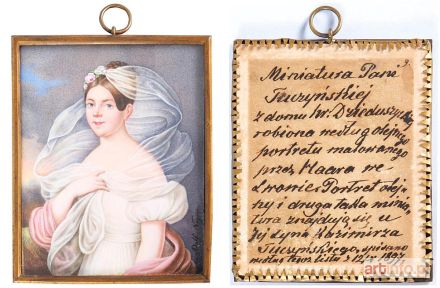 Miniatura Pani
Tuczyńskiej
z domu hr. Dzieduszyc
robiona według olejnego
portretu malowanego
przez Maara we
Lwowie. Portret olej-
ny i druga taka minia-
tura znajdują się u
jej syna Kazimierza
Tuczyńskiego, spisano
według listu z 12/IX 1897
artinfo.pl